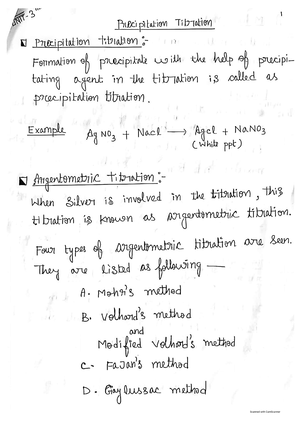 Unit-3rd
Precipitation Titration
1
Precipitation titration:-
Formation of precipitate with the help of precipi-
tating agent in the titration is called as
precipitation titration.
Example
AgNO3 + Nacl → Agcl + NaNO3
(white ppt)
Argentometric titration:-
When Silver is involved in the titration, this
titration is known as argentometric titration.
Four types of argentometric titration are seen.
They are listed as following —
A. Mohr's method
B. Volhard's method
and
Modified Volhard's method
C. Fajan's method
D. Gaylussac method
Scanned with CamScanner